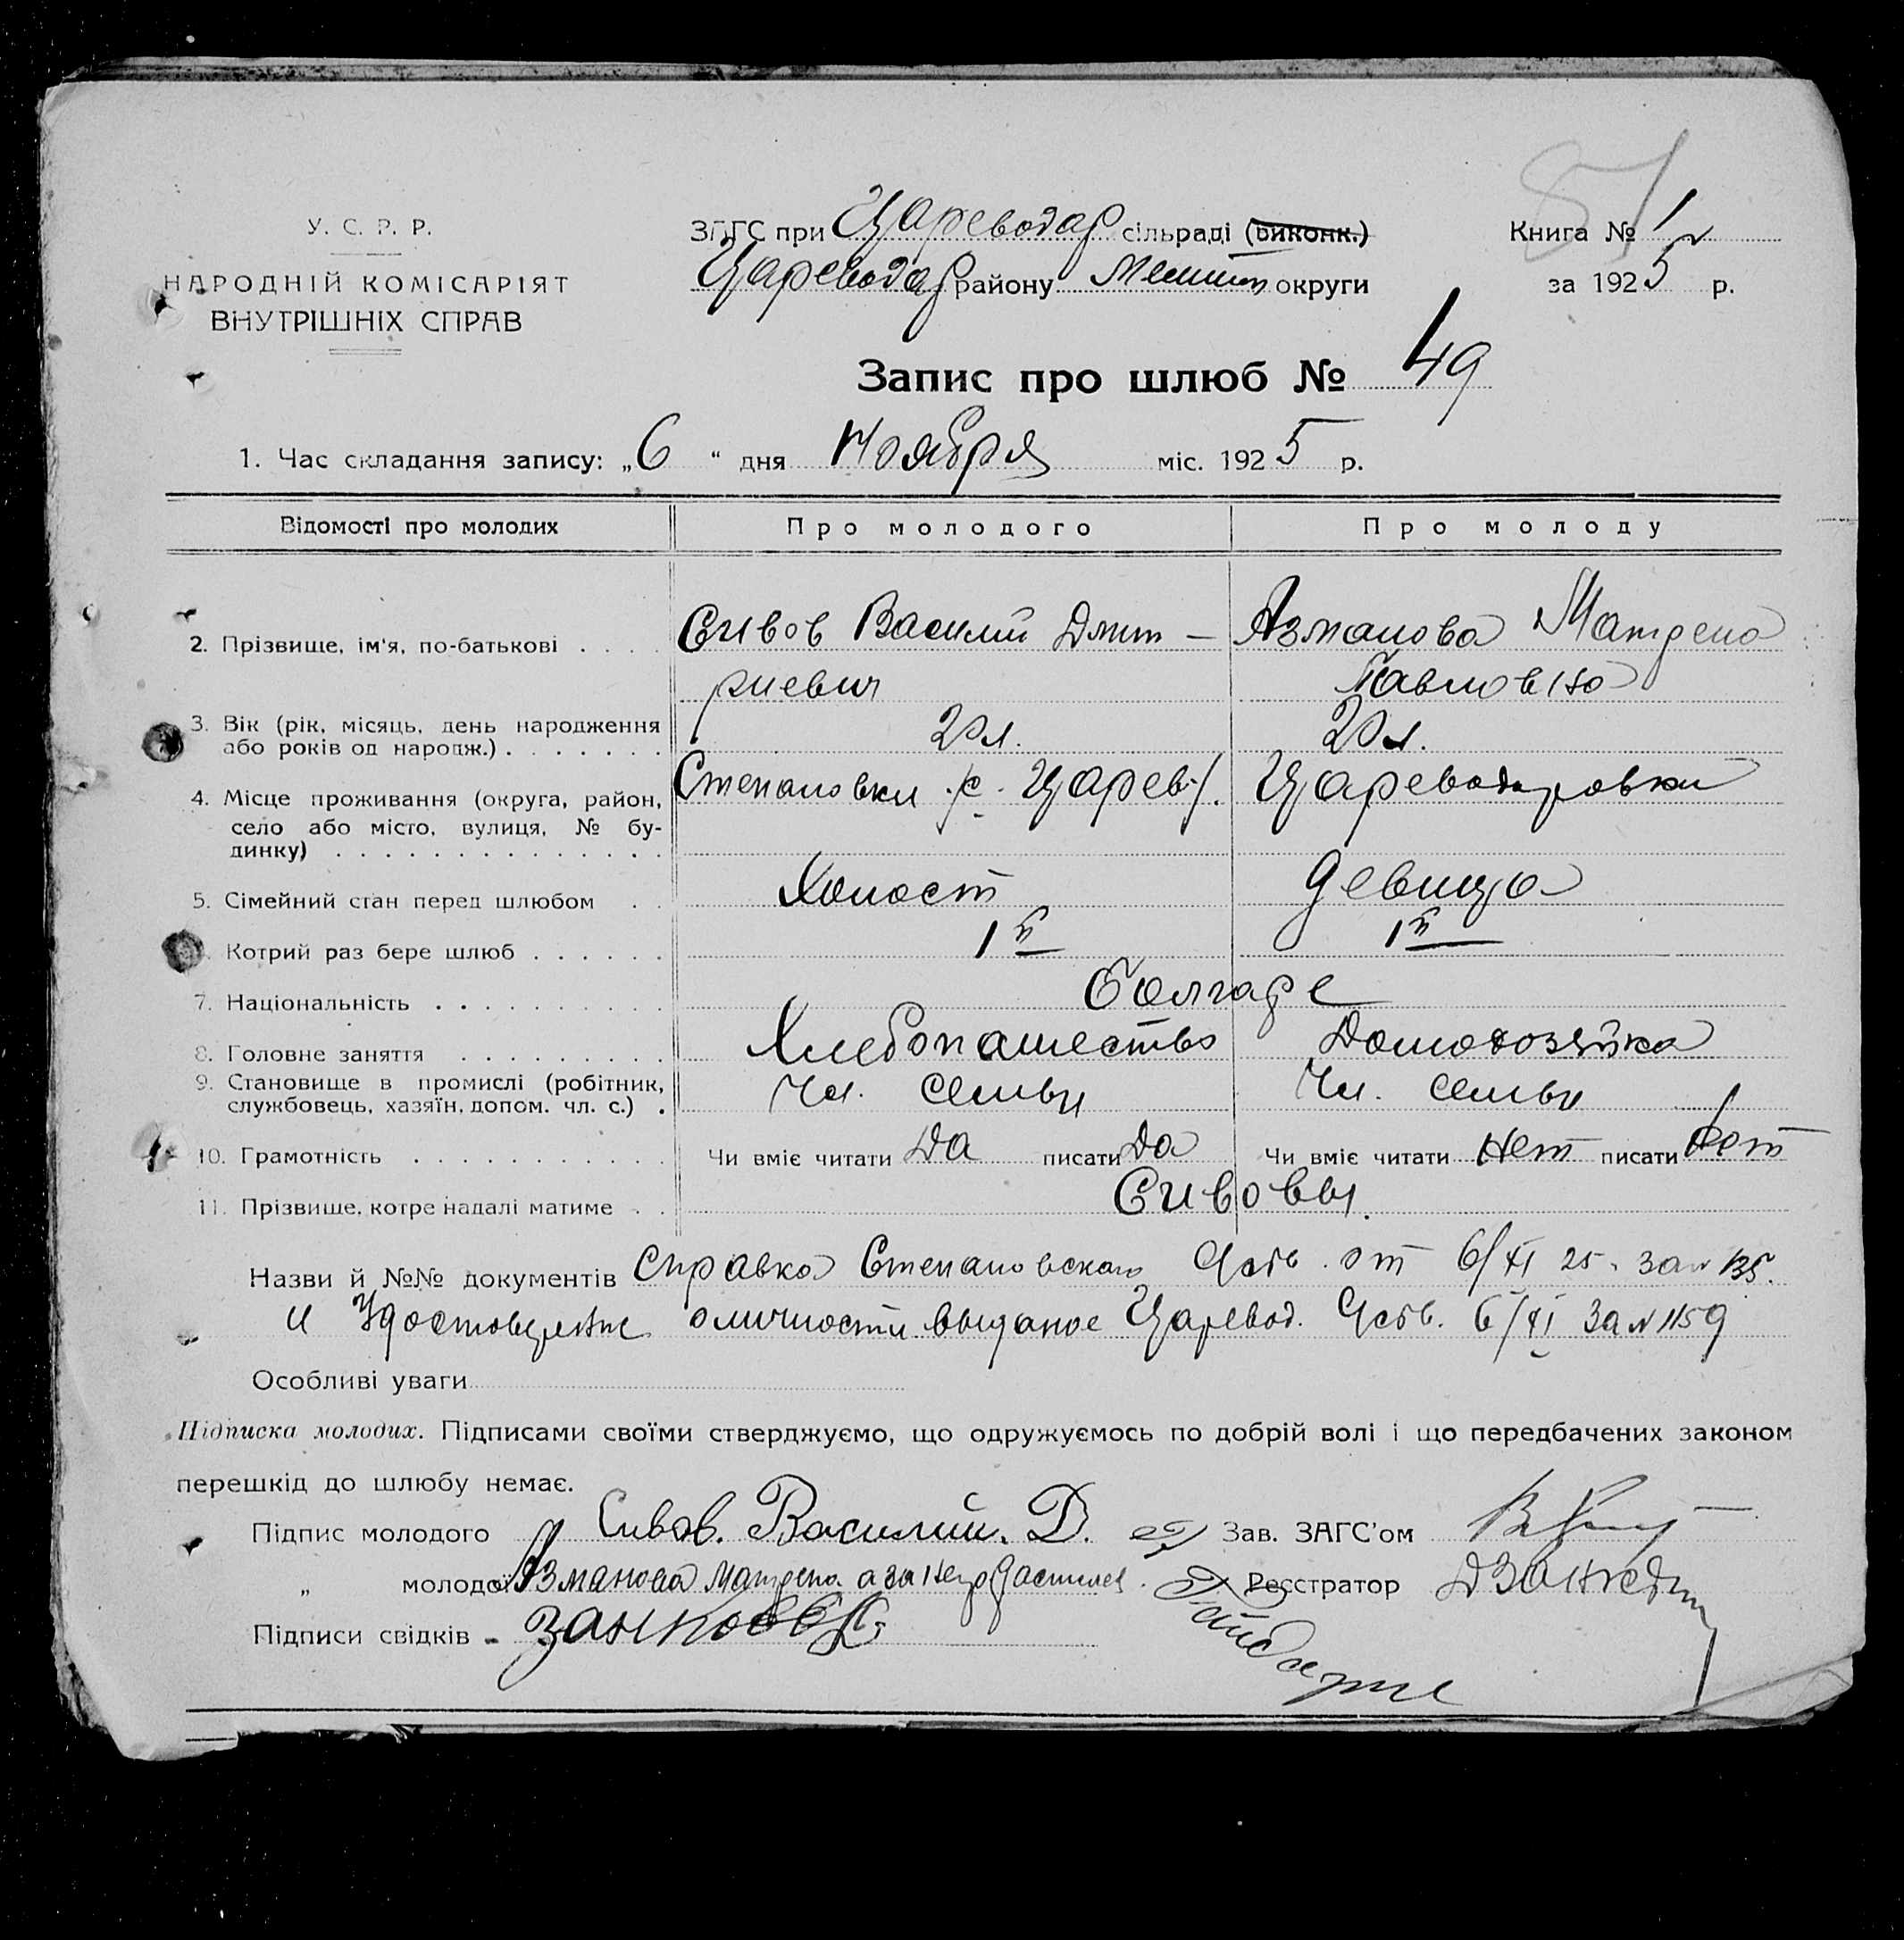 87
У. С. Р. Р.
НАРОДНІЙ КОМІСАРІЯТ
ВНУТРІШНІХ СПРАВ
ЗАГС при Цареводар сільраді (виконк.)
Цареводар району Мелит округи
Книга № 1
за 1925 р.
Запис про шлюб № 49
1. Час складання запису: „6 “ дня Ноября міс. 1925 р.
Відомості про молодих Про молодого Про молоду
2. Прізвище, ім'я, по-батькові . . . . Сивов Василий Дмит- Азманова Матрена
риевич Павловна
3. Вік (рік, місяць, день народження
або років од народж.) . . . . . . . 20 л. 20 л.
4. Місце проживання (округа, район, Степановки /с. Царев/. Цареводаровки
село або місто, вулиця, № бу-
динку) . . . . . . . . . . . . . .
5. Сімейний стан перед шлюбом . . Холост девица
Котрий раз бере шлюб . . . . . . 1й 1й
7. Національність . . . . . . . . . . Болгаре
8. Головне заняття . . . . . . . . . Хлебопашество Домохозяйка
9. Становище в промислі (робітник,
службовець, хазяїн, допом. чл. с.) . Чл. семьи Чл. семьи
10. Грамотність . . . . . . . . . . . Чи вміє читати Да писати Да Чи вміє читати Нет писати Нет
11. Прізвище, котре надалі матиме . . Сивовы.
Назви й №№ документів Справка Степановскаго от 6/XI 25. за № 135.
и Удостоверение о личности выданое Царевод. 6/XI за № 1159
Особливі уваги
Підписка молодих. Підписами своїми стверджуємо, що одружуємось по добрій волі і що передбачених законом
перешкід до шлюбу немає.
Підпис молодого Сивов. Василий. Д. Зав. ЗАГС'ом
„ молодої Азманова Матрена а за неё Реєстратор
Підписи свідків